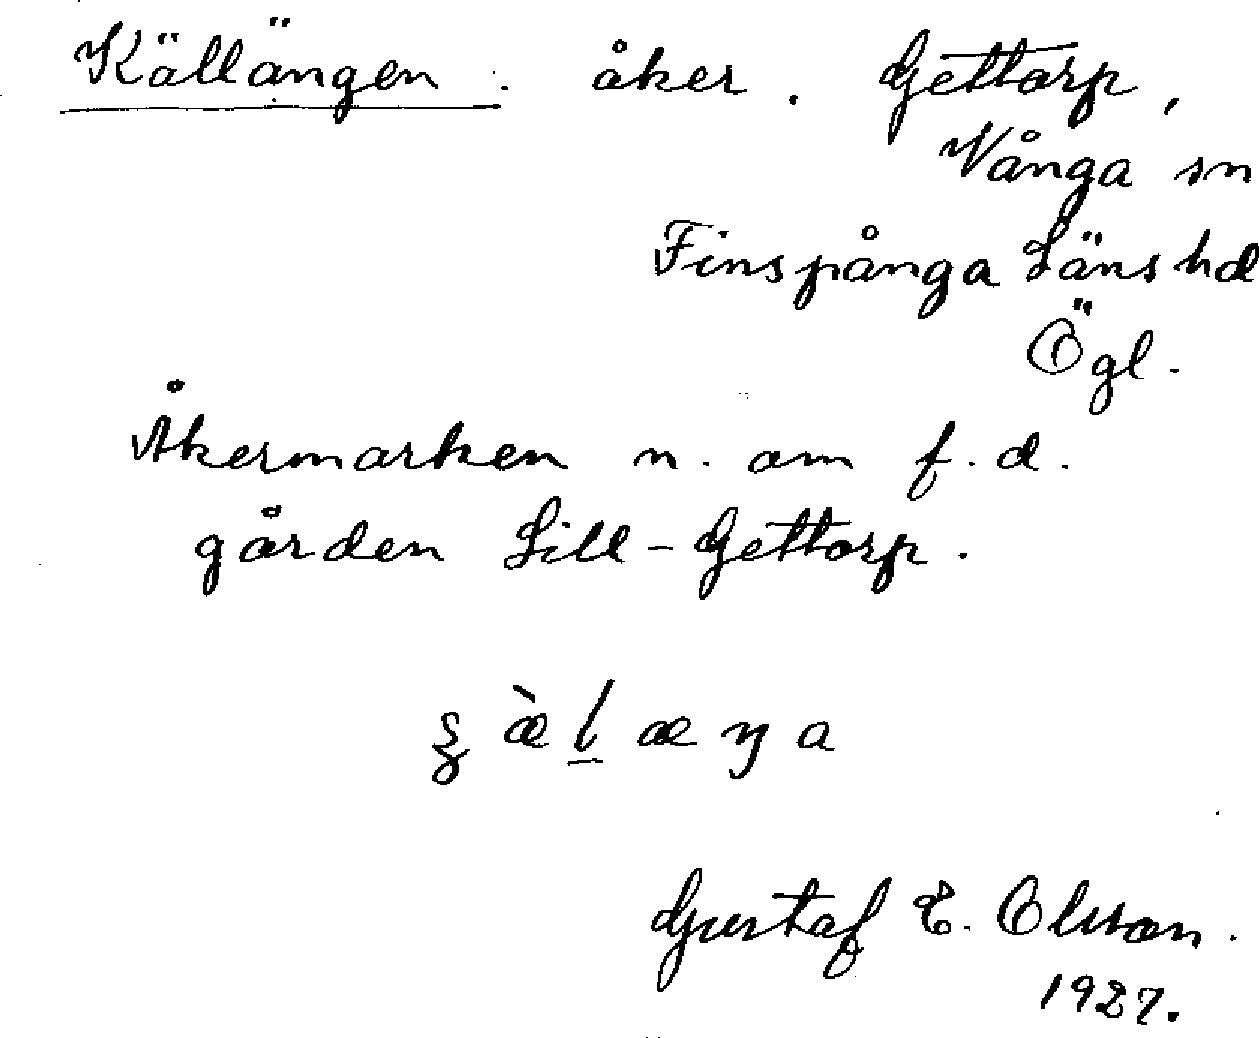 Källängen . åker . Gettorp ,
Vånga sn
Finspånga Läns hd
Ögl.
Åkermarken n. om f. d.
gården Lill-Gettorp .
Gustaf E. Olsson .
1927.